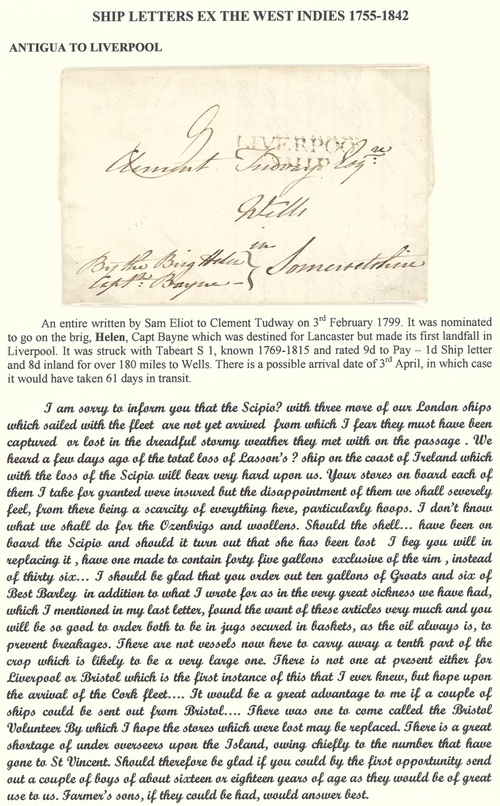 SHIP LETTERS EX THE WEST INDIES 1755-1842
ANTIGUA TO LIVERPOOL
9
LIVERPOOL
SHIP
Clement Tudway Esqr.
Wells
in
By the Brig Helen
Somersetshire
Captn. Bayne
An entire written by Sam Eliot to Clement Tudway on 3rd February 1799. It was nominated
to go on the brig, Helen, Capt Bayne which was destined for Lancaster but made its first landfall in
Liverpool. It was struck with Tabeart S 1, known 1769-1815 and rated 9d to Pay – 1d Ship letter
and 8d inland for over 180 miles to Wells. There is a possible arrival date of 3rd April, in which case
it would have taken 61 days in transit.
I am sorry to inform you that the Scipio? with three more of our London ships
which sailed with the fleet are not yet arrived from which I fear they must have been
captured or lost in the dreadful stormy weather they met with on the passage . We
heard a few days ago of the total loss of Lasson's ? ship on the coast of Ireland which
with the loss of the Scipio will bear very hard upon us. Your stores on board each of
them I take for granted were insured but the disappointment of them we shall severely
feel, from there being a scarcity of everything here, particularly hoops. I don't know
what we shall do for the Ozenbrigs and woollens. Should the shell... have been on
board the Scipio and should it turn out that she has been lost I beg you will in
replacing it , have one made to contain forty five gallons exclusive of the rim , instead
of thirty six... I should be glad that you order out ten gallons of Groats and six of
Best Barley in addition to what I wrote for as in the very great sickness we have had,
which I mentioned in my last letter, found the want of these articles very much and you
will be so good to order both to be in jugs secured in baskets, as the oil always is, to
prevent breakages. There are not vessels now here to carry away a tenth part of the
crop which is likely to be a very large one. There is not one at present either for
Liverpool or Bristol which is the first instance of this that I ever knew, but hope upon
the arrival of the Cork fleet.... It would be a great advantage to me if a couple of
ships could be sent out from Bristol.... There was one to come called the Bristol
Volunteer By which I hope the stores which were lost may be replaced. There is a great
shortage of under overseers upon the Island, owing chiefly to the number that have
gone to St Vincent. Should therefore be glad if you could by the first opportunity send
out a couple of boys of about sixteen or eighteen years of age as they would be of great
use to us. Farmer's sons, if they could be had, would answer best.